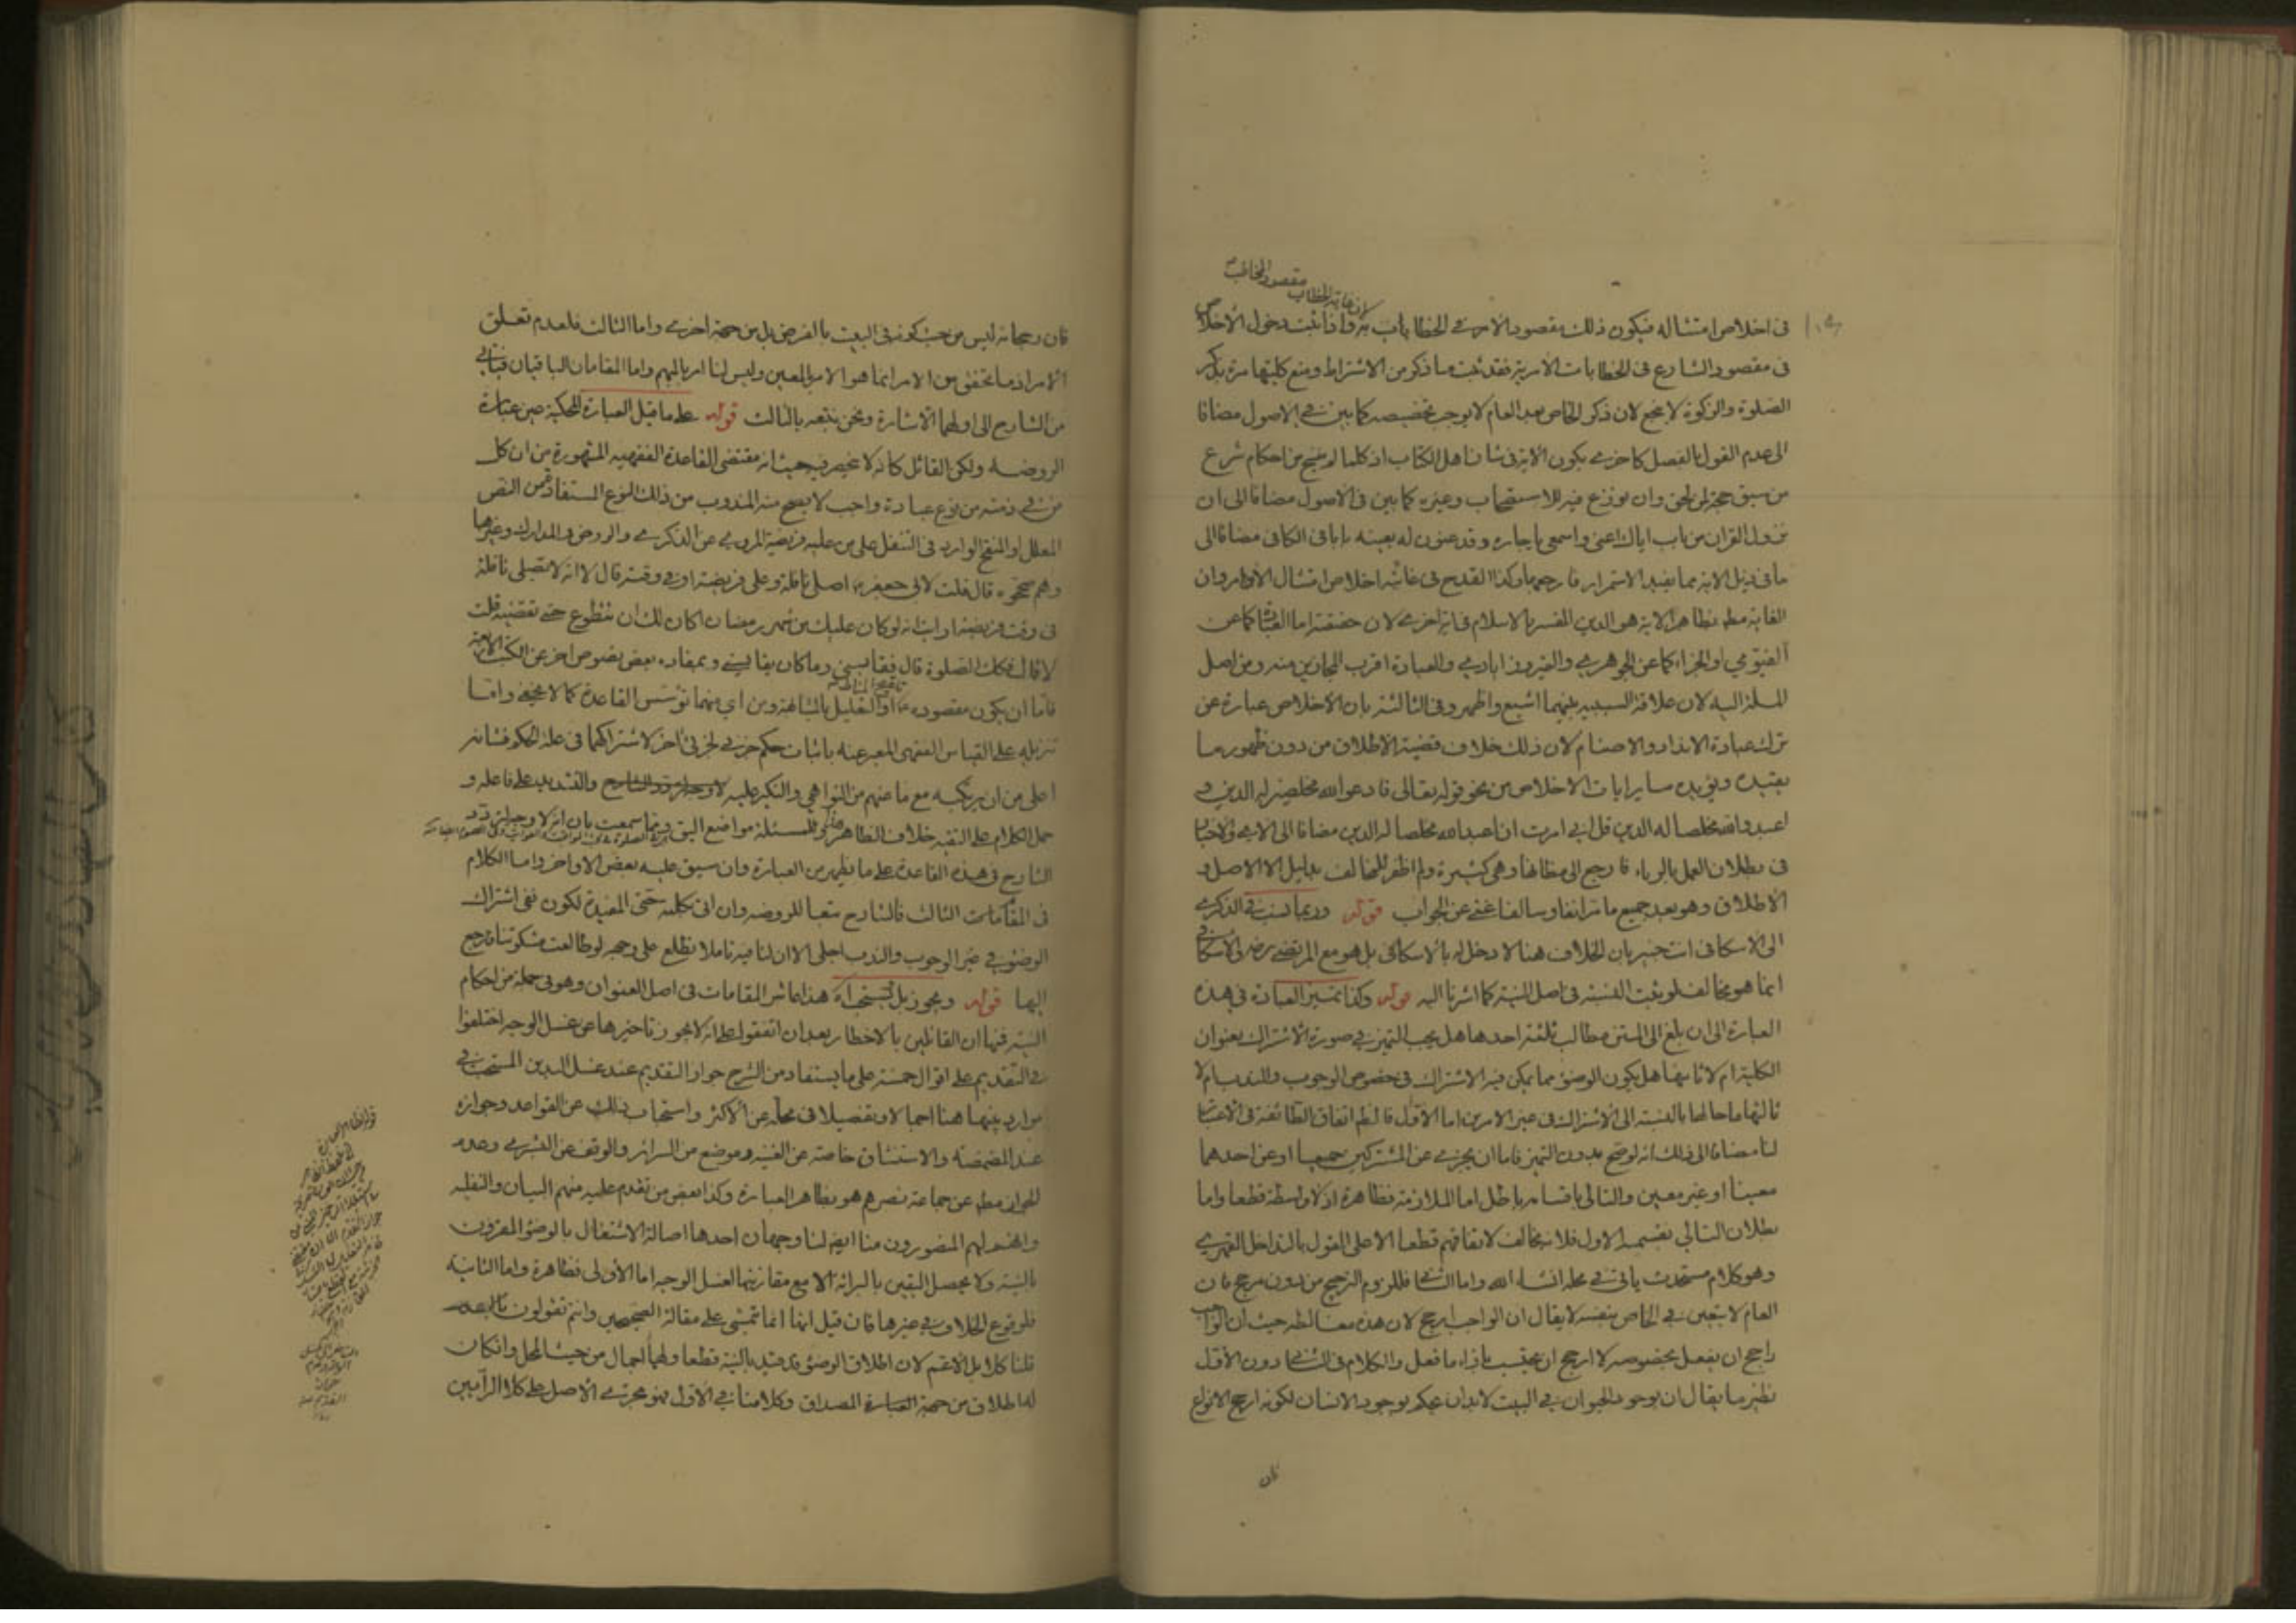 لان غاية الخطاب مقصود المخاطب
فى اخلاص امتثاله فيكون ذلك مقصود الامر فى الخطابات به واذا ثبت دخول الاخلاص
فى مقصود الشارع فى الخطابات الامرية فقد ثبت ما ذكر من الاشتراط ومنع كليتها مرة بذكر
الصلوة والزكوة لا ينجع لان ذكر الخاص بعد العام لا يوجب تخصيصه كما بين فى الاصول مضافا
الى عدم القول بالفصل كاخرى بكون الاية فى شان اهل الكتاب اذ كلما لم ينسخ من احكام شرع
من سبق حجة لمن لحق وان نوزع فيه للاستصحاب وغيره كما بين فى الاصول مضافا الى ان
نزول القران من باب اياك اعنى واسمعى يا جاره وقد عنون له بعينه بابا فى الكافى مضافا الى
ما فى ذيل الاية مما يفيد الاستمرار فارجعها وكذا القدح فى غائية اخلاص امتثال الاوامر وان
الغاية مط بظاهر الاية هو الدين المفسر بالاسلام فى اية اخرى لان حقيقته اما العبادة كما عن
الفيومي او الجزاء كما عن الجوهرى والفيروزابادى والعبادة اقرب المجازين منه ومن اصل
الملة اليه لان علاقة السببية بينهما اشيع واظهر وفى الثالثة بان الاخلاص عبارة عن
ترك عبادة الانداد والاصنام لان ذلك خلاف قضية الاطلاق من دون ظهور ما
يقيده ويؤيده ساير ايات الاخلاص من نحو قوله تعالى فادعوا الله مخلصين له الدين و
اعبدوا الله مخلصا له الدين قل انى امرت ان اعبد الله مخلصا له الدين مضافا الى الاى والاخبار
فى بطلان العمل بالرياء فارجع الى مظانها وهى كثيرة ولم اظفر للمخالف بدليل الا الاصل و
الاطلاق وهو بعد جميع ما مر انفا وسالفا غنى عن الجواب قوله وربما نسب فى الذكرى
الى الاسكافى انت خبير بان الخلاف هنا لا دخل له بالاسكافى بل هو مع المرتضى رض والاسكافى
انما هو مخالف لو ثبت النسبة فى اصل النية كما اشرنا اليه قوله وكذا تميز العبادة فى هذه
العبارة الى ان بلغ الى المتن مطالب ثلثة احدها هل يجب التميز فى صورة الاشتراك بعنوان
الكلية ام لا ثانيها هل يكون الوضوء مما يمكن فيه الاشتراك فى خصوص الوجوب والندب ام لا
ثالثها ما حالها بالنسبة الى الاشتراك فى غير الامرين اما الاول فالظ اتفاق الطائفة فى الاعتبار
لنا مضافا الى ذلك انه لو صح بدون التميز فاما ان يجزى عن المشتركين جميعا او عن احدهما
معينا او غير معين والتالى باقسامه باطل اما الملازمة فظاهرة اذ لا واسطة قطعا واما
بطلان التالى بقسمه الاول فلانه مخالف لاتفاقهم قطعا الا على القول بالتداخل القهرى
وهو كلام مستحدث ياتى فى محله انشاء الله واما الثانى فللزوم الترجيح من دون مرجح فان
العام لا يتعين فى الخاص بنفسه لا يقال ان الواجب ارجح لان هذه مغالطة حيث ان الواجب
راجح ان يفعل بخصوصه لا ارجح ان يحتسب بازاء ما فعل والكلام فى الثانى دون الاول
نظير ما يقال ان بوجود الحيوان فى البيت لابد ان يحكم بوجود الانسان لكونه ارجح الانواع
فان
فان رجحانه ليس من حيث كونه فى البيت بالفرض بل من جهة اخرى واما الثالث فلعدم تعلق
الامر اذ ما تحقق من الامر انما هو الامر بالمعين وليس لنا امر بالمبهم واما المقامان الباقيان فياتى
من الشارح الى اولهما الاشارة ونحن نتبعه بالثالث قوله على ما قيل العبارة المحكية عين عبارة
الروضة ولكن القائل كانه لا ينحصر فيه حيث انه مقتضى القاعدة الفقهية المشهورة من ان كل
من فى ذمته من نوع عبادة واجب لا يصح منه المندوب من ذلك النوع المستفاد من النص
المعلل او المنقح الوارد فى التنفل على من عليه فريضة المروى عن الذكرى والروض والمدارك وغيرها
وهم صححوه قال قلت لابى جعفر ع اصلى نافلة وعلى فريضة او فى وقت فريضة قال لا انه لا تصلى نافلة
فى وقت فريضة ارايت انه لو كان عليك من شهر رمضان اكان لك ان تتطوع حتى تقضيه قلت
لا قال فكك الصلوة قال فقايسنى وما كان يقايسنى وبمفاده بعض نصوص اخر عن الكتب الاربعة
فاما ان يكون مقصوده ع تنقيح المناط او التعليل بالمشابهة ومن اى منهما تؤسس القاعدة كما لا يخفى واما
تنزيله على القياس الفقهى المعبر عنه باثبات حكم جزئى لجزئى اخر لاشتراكهما فى علة الحكم فشانه
اعلى من ان يرتكبه مع ما عنهم من النواهى والنكير عليه والتشديد على فاعله و
حمل الكلام على التقية خلاف الظاهر وللمسئلة مواضع اليق وبما سمعت بان انه لا وجه لتردد
الشارح فى هذه القاعدة على ما يظهر من العبارة وان سبق عليه بعض الاواخر واما الكلام
فى المقامات الثالث فالشارح تبعا للروضة وان اتى بكلمة حتى المفيدة لكون نفى اشتراك
الوضوء فى غير الوجوب والندب اجلى الا ان لنا فيه تاملا تطلع على وجهه لو طالعت مشكوتنا فارجع
اليها قوله ويجوز بل يستحب اه هذا عاشر المقامات فى اصل العنوان وهو فى جملة من احكام
النية فيها ان القائلين بالاخطار بعد ان اتفقوا على انه لا يجوز تاخيرها عن غسل الوجه اختلفوا
فى التقديم على اقوال خمسة على ما يستفاد من الشرح جواز التقديم عند غسل اليدين المستحب فى
موارد بينها هنا اجمالا وتفصيلا فى محله عن الاكثر واستحباب ذلك عن القواعد وجوازه
عند المضمضة والاستنشاق خاصة عن الغنية وموضع من السرائر والتوقف عن البشرى وعدم
الجواز مط عن جماعة نصرهم هو بظاهر العبارة وكذا بعض من تقدم عليه منهم البيان والنفلية
والمنصورون منا ايضا لنا وجهان احدها اصالة الاشتغال بالوضوء المقرون
بالنية ولا يحصل اليقين بالبرائة الا مع مقارنتها لغسل الوجه اما الاولى فظاهرة واما الثانية
فلوقوع الخلاف فى غيرها فان قيل انها انما تتمشى على مقالة الصحيحيين وانتم تقولون بالعدم
قلنا كلا بل الاعم لان اطلاق الوضوء قد قيد بالنية قطعا ولها اجمال من حيث المحل وان كان
لها اطلاق من جهة المصداق وكلامنا فى الاول فهو مجرى الاصل على كلا الرأيين